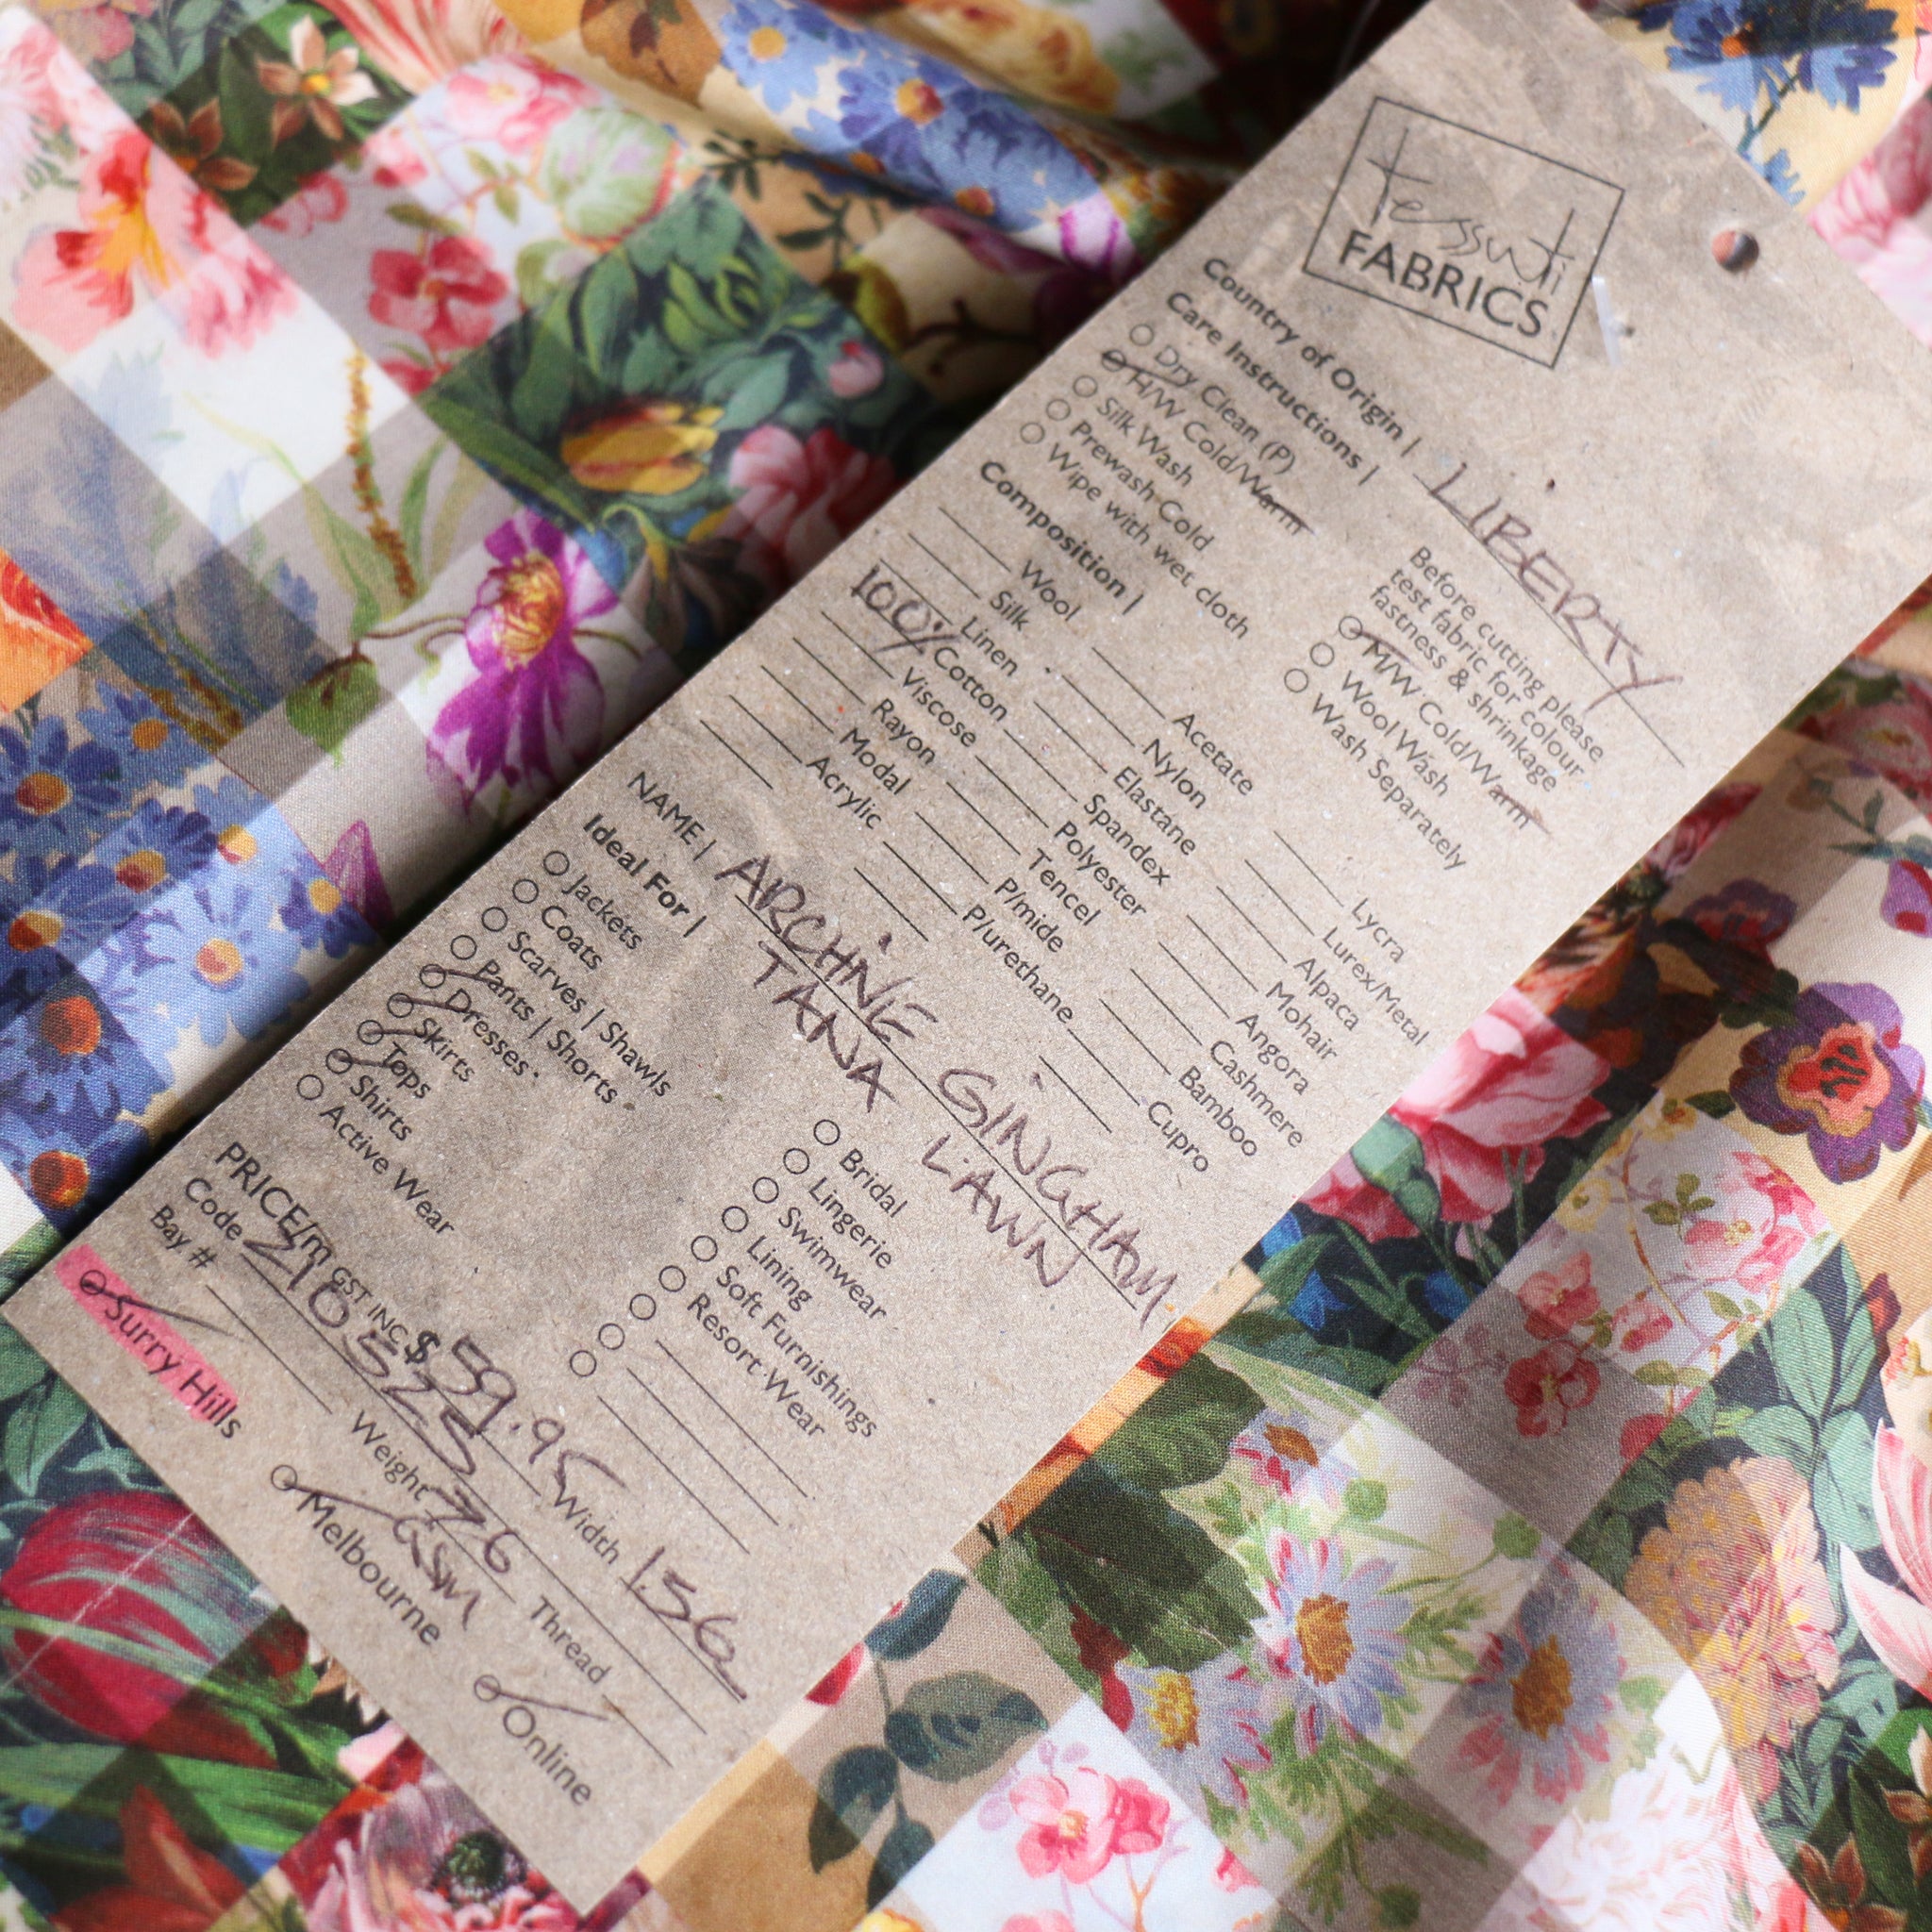 tessuti
FABRICS
Country of Origin | LIBERTY
Care Instructions |
Dry Clean (P)
H/W Cold/Warm
Silk Wash
Prewash-Cold
Wipe with wet cloth
Before cutting please
test fabric for colour
fastness & shrinkage
M/W Cold/Warm
Wool Wash
Wash Separately
Composition |
Wool
Silk
Linen
100% Cotton
Viscose
Rayon
Modal
Acrylic
Acetate
Nylon
Elastane
Spandex
Polyester
Tencel
P/mide
P/urethane
Lycra
Lurex/Metal
Alpaca
Mohair
Angora
Cashmere
Bamboo
Cupro
NAME | ARCHIVE GINGHAM
TANA LAWN
Ideal For |
Jackets
Coats
Scarves | Shawls
Pants | Shorts
Dresses
Skirts
Tops
Shirts
Active Wear
Bridal
Lingerie
Swimwear
Lining
Soft Furnishings
Resort Wear
PRICE/m GST INC. $ 59.95 Width 1.36
Code 2105255 Weight 76 gsm Thread
Bay #
Surry Hills
Melbourne
Online